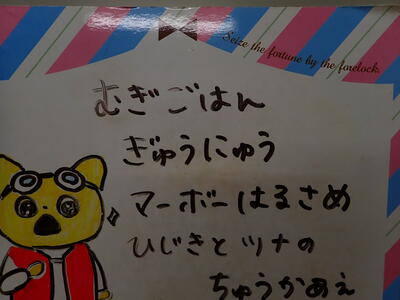 Seize the fortune by the forelock.
むぎごはん
ぎゅうにゅう
マーボーはるさめ
ひじきとツナの
ちゅうかあえ